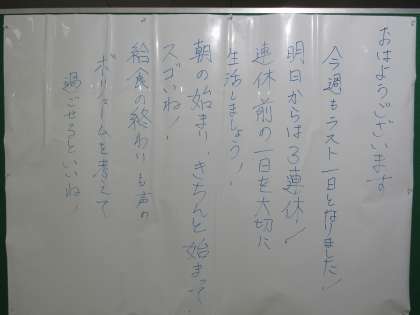 おはようございます
今週もラスト一日となりました!
明日からは3連休!
連休前の一日を大切に
生活しましょう!
朝の始まり、きちんと始まって
スゴいね!
給食の終わりも声の
ボリュームを考えて
過ごせるといいね!